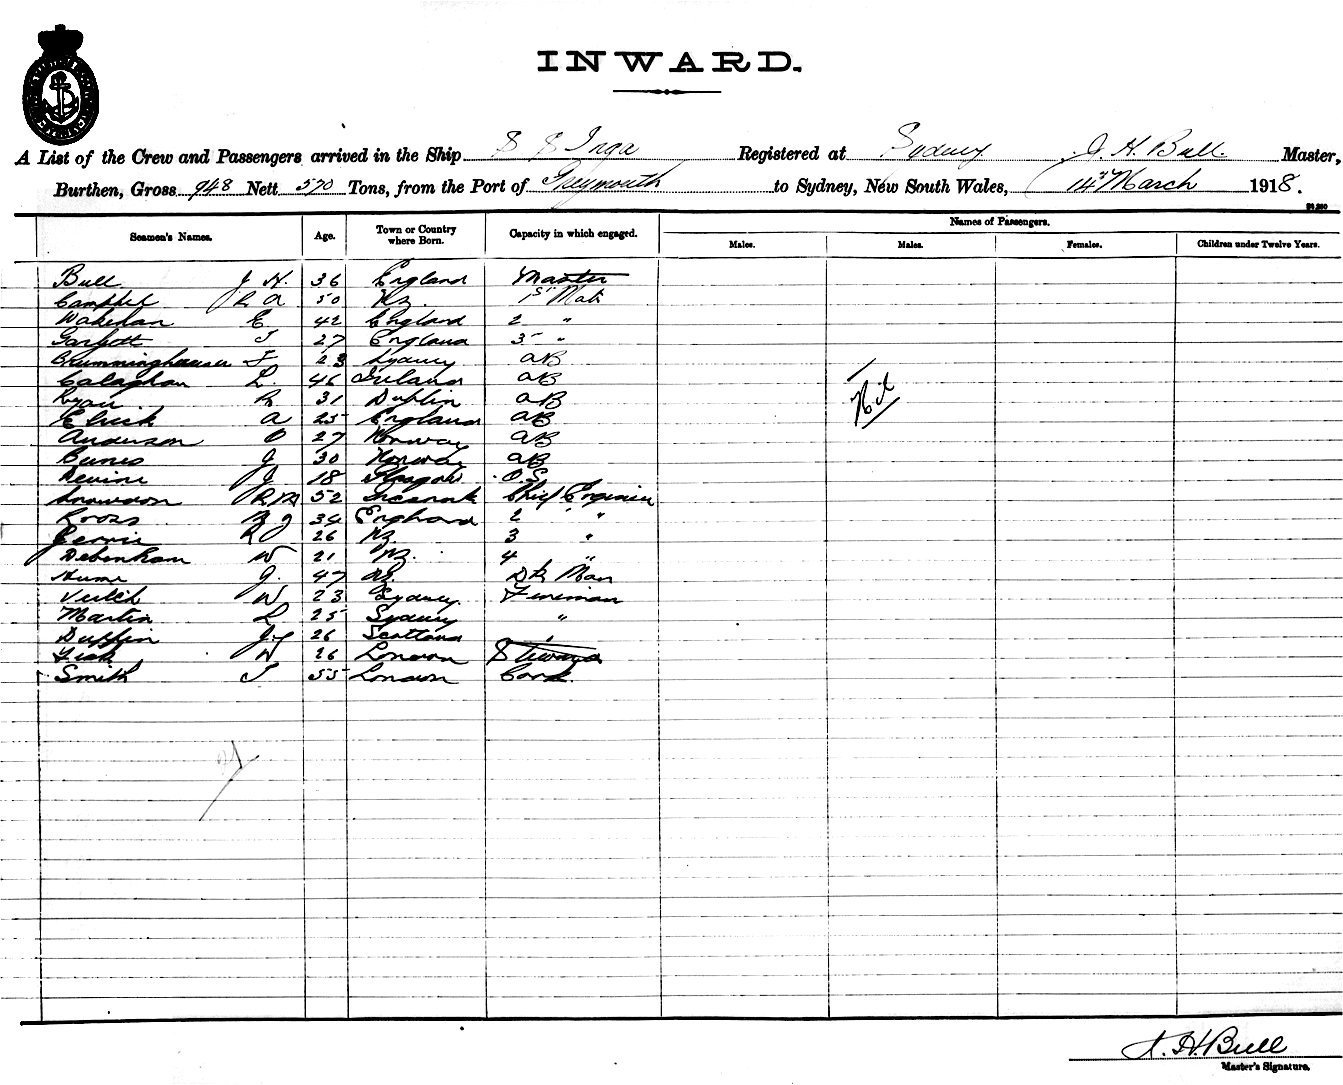 INWARD.
A List of the Crew and Passengers arrived in the Ship S S Inga Registered at Sydney J. H. Bull Master,
Burthen, Gross 948 Nett 570 Tons, from the Port of Greymouth to Sydney, New South Wales, 14th March 1918.
Names of Passengers.
Seamen's Names. Age. Town or Country where Born. Capacity in which engaged. Males. Males. Females. Children under Twelve Years.
Bull J. H. 36 England Master
Campbel R A 50 NZ. 1st Mate
Wakeham E 42 England 2 "
Garbott J 27 England 3 "
Brumminghausen F 23 Sydney AB
Calaghan L. 46 Ireland AB
Nil
Ryan R 31 Dublin AB
Elrick A 25 England AB
Anderson O 27 Norway AB
J 30 Norway AB
Devine J 18 Glasgow O.S
Snowdon R M 52 Chief Engineer
Ross 34 England 2 " "
Jervis R J 26 NZ. 3 "
Debenham W 21 NZ. 4 "
Hume J. 47 NZ. Man
Veitch W 23 Sydney Fireman
Martin L 25 Sydney "
Duffin J. 26 Scotland "
Fisk W 26 London Steward
Smith J 55 London Cook.
21
J. H. Bull
Master's Signature.